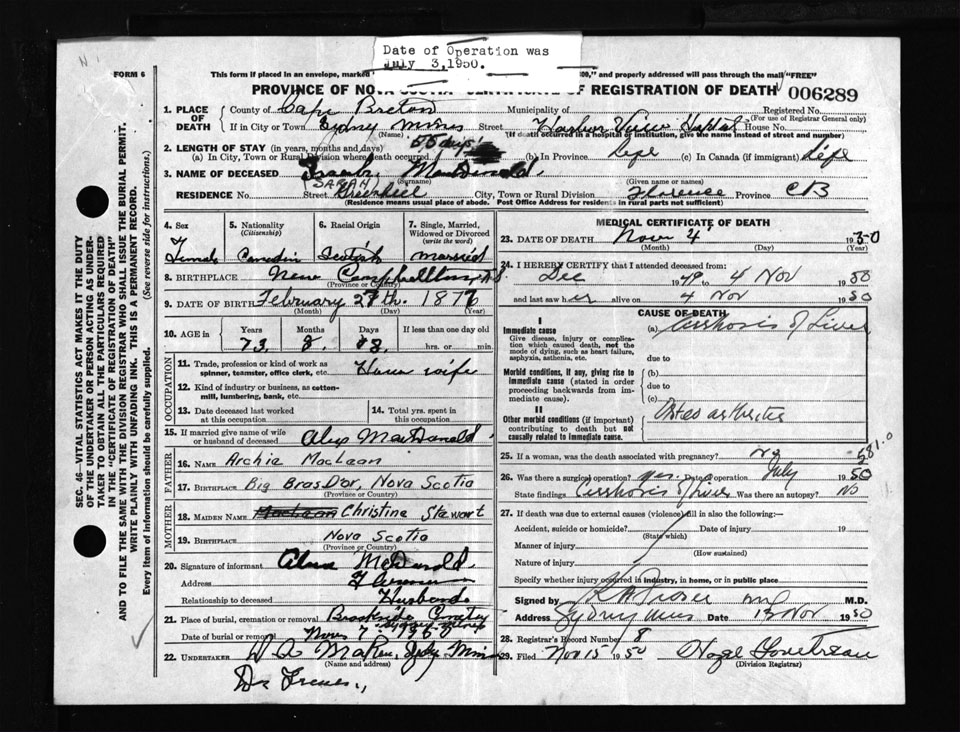 Date of Operation was
July 3, 1950.
FORM 6
This form if placed in an envelope, marked and properly addressed will pass through the mail "FREE"
PROVINCE OF NOVA SCOTIA CERTIFICATE OF REGISTRATION OF DEATH 006289
1. PLACE OF DEATH County of Cape Breton Municipality of Registered No.
(For use of Registrar General only)
If in City or Town Sydney Mines Street Harbor View Hosptal House No.
(Name) (If death occurred in hospital or institution, give its name instead of street and number)
2. LENGTH OF STAY (in years, months and days)
(a) In City, Town or Rural Division where death occurred 55 days (b) In Province Life (c) In Canada (if immigrant) Life
3. NAME OF DECEASED MacDonald
SARAH (Surname) (Given name or names)
RESIDENCE No. Street Greenhill City, Town or Rural Division Florence Province CB
(Residence means usual place of abode. Post Office Address for residents in rural parts not sufficient)
4. Sex
Female
5. Nationality
(Citizenship)
Canadin
6. Racial Origin
Scotish
7. Single, Married, Widowed or Divorced
(write the word)
married
8. BIRTHPLACE New Campbellton, N.S.
(Province or Country)
9. DATE OF BIRTH February 27th. 1877
(Month) (Day) (Year)
10. AGE in Years Months Days If less than one day
73 8 hrs. or min.
OCCUPATION
11. Trade, profession or kind of work as spinner, teamster, office clerk, etc. House wife
12. Kind of industry or business, as cotton-mill, lumbering, bank, etc.
13. Date deceased last worked at this occupation
14. Total yrs. spent in this occupation
15. If married give name of wife or husband of deceased MacDonald
FATHER
16. NAME Archie MacLean
17. BIRTHPLACE Big BrasD'or, Nova Scotia
(Province or Country)
MOTHER
18. MAIDEN NAME MacLean Christine Stewart
19. BIRTHPLACE Nova Scotia
(Province or Country)
20. Signature of informant McDonald
Address Florence
Relationship to deceased Husband
21. Place of burial, cremation or removal Brookside Cemetry
Sydney Mines
Date of burial or removal Nov 7 1950
22. UNDERTAKER Sydney Mines
(Name and address)
MEDICAL CERTIFICATE OF DEATH
23. DATE OF DEATH Nov 4 1950
(Month) (Day) (Year)
24. I HEREBY CERTIFY that I attended deceased from:
Dec 1949 to 4 Nov 1950
and last saw her alive on 4 Nov 1950
CAUSE OF DEATH
I
Immediate cause (a) Cirrhosis of Liver
Give disease, injury or complication which caused death, not the mode of dying, such as heart failure, asphyxia, asthenia, etc.
due to
Morbid conditions, if any, giving rise to immediate cause (stated in order proceeding backwards from immediate cause).
(b)
due to
(c)
II
Other morbid conditions (if important) contributing to death but not causally related to immediate cause.
Osteo arthritis
581.0
25. If a woman, was the death associated with pregnancy? No
26. Was there a surgical operation? yes Date of operation July 1950
State findings Cirrhosis of liver Was there an autopsy? No
27. If death was due to external causes (violence) fill in also the following:
Accident, suicide or homicide? Date of injury 19
(State which)
Manner of injury
(How sustained)
Nature of injury
Specify whether injury occurred in industry, in home, or in public place
Signed by M.D.
Address Sydney Mines Date 13 Nov 1950
28. Registrar's Record Number 8
29. Filed Nov 15 1950 Hazel
(Division Registrar)
SEC. 46—VITAL STATISTICS ACT MAKES IT THE DUTY
OF THE UNDERTAKER OR PERSON ACTING AS UNDERTAKER
TO OBTAIN ALL THE PARTICULARS REQUIRED
IN THE "CERTIFICATE OF REGISTRATION OF DEATH"
AND TO FILE THE SAME WITH THE DIVISION REGISTRAR WHO SHALL ISSUE THE BURIAL PERMIT.
WRITE PLAINLY WITH UNFADING INK. THIS IS A PERMANENT RECORD.
Every item of information should be carefully supplied. (See reverse side for instructions.)